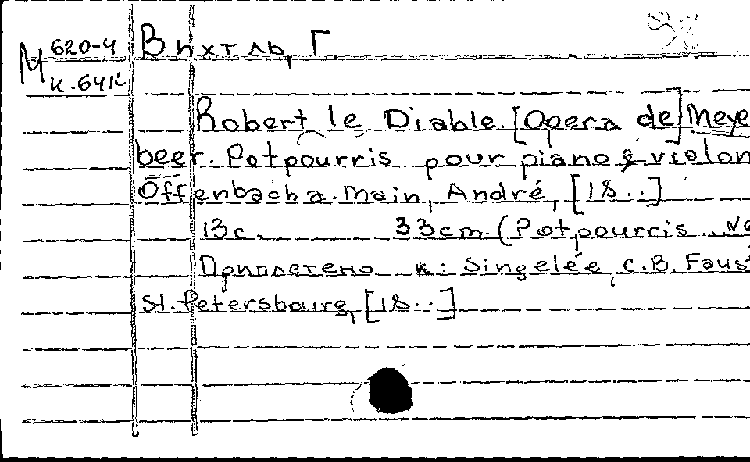 М 620-4
к.641к
Вихтль, Г.
Robert le Diable [Opera de] Meye
beer. Potpourris pour piano & violon
Offenbach a. Main, André, [18..]
13с. 33cm (Potpourris
Приплетено к: Singelée, C.B. Faus
St. Petersbourg, [18..]